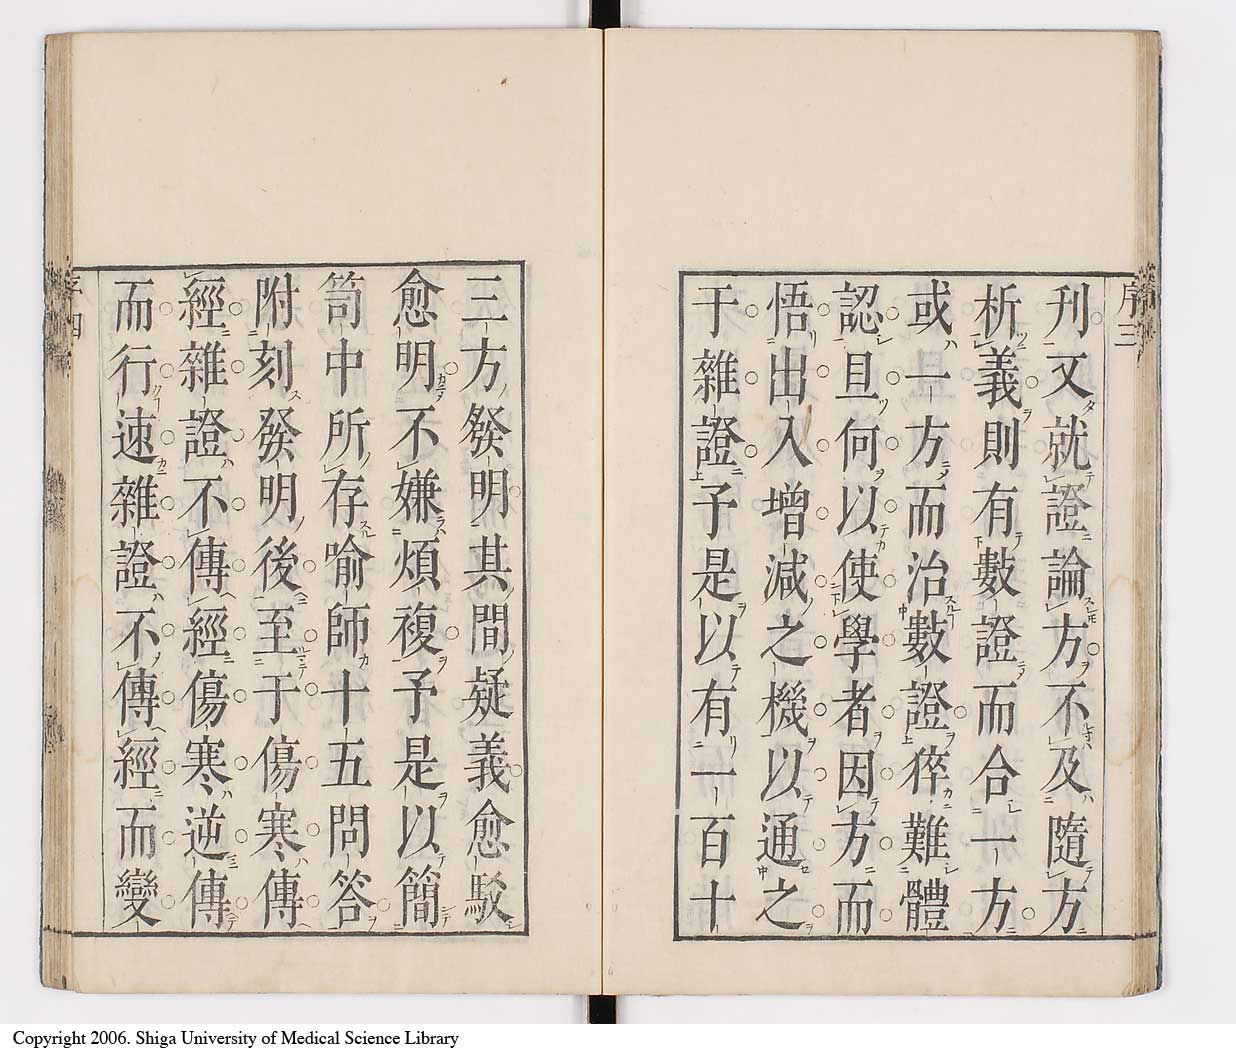 序三
刊又就證論方不及隨方
析義則有數證而合一方
或一方而治數證猝難體
認且何以使學者因方而
悟出入增減之機以通之
于雜證予是以有一百十
三方發明其間疑義愈駁
愈明不嫌煩複予是以簡
笥中所存喻師十五問答
附刻發明後至于傷寒傳
經雜證不傳經傷寒逆傳
而行速雜證不傳經而變
序四
Copyright 2006. Shiga University of Medical Science Library